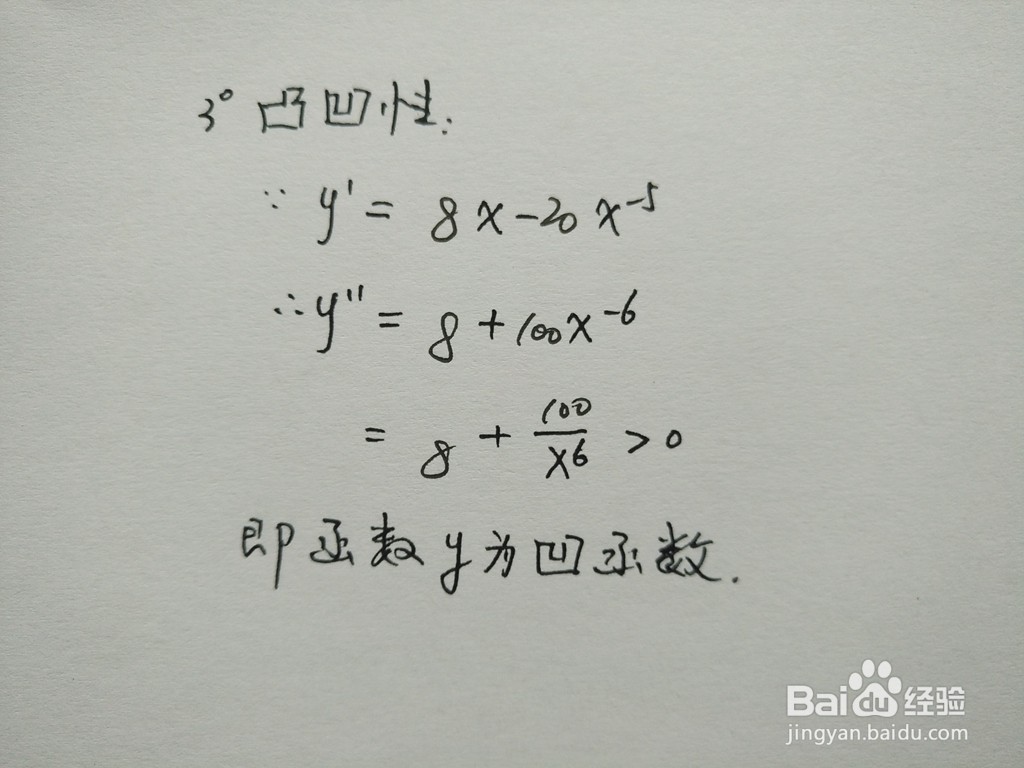 3° 凸凹性:
∵ y' = 8x-20x⁻⁵
∴ y'' = 8+100x⁻⁶
= 8 + 100/x⁶ > 0
即函数y为凹函数.
Baidu经验
jingyan.baidu.com